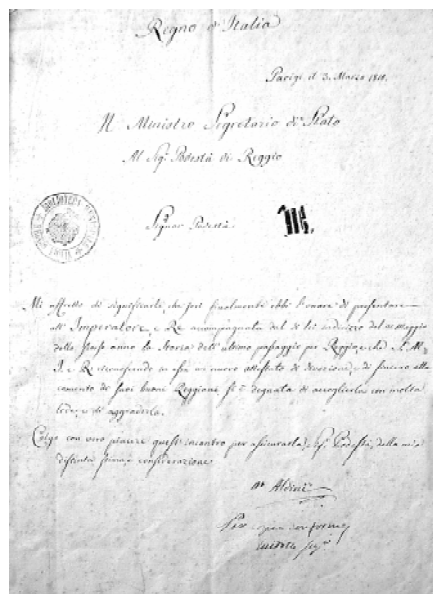 Regno d'Italia
Parigi il 3. Marzo 1811.
Il Ministro Segretario di Stato
Al Sig. Podestà di Reggio
Signor Podestà
Mi affretto di significarle, che jeri finalmente ebbi l'onore di presentare
all'Imperatore, e Re accompagnata dal di lei indirizzo del Maggio
dello stesso anno la Storia dell'ultimo passaggio per Reggio, e che S. M.
I. e R. riconoscendo in essa un nuovo attestato di divozione, e di sincero atta
camento de' suoi buoni Reggiani si è degnata di accoglierla con molta
e di aggradirla.
Colgo con vero piacere quest'incontro per assicurarla, Sig. Podestà, della mia
distinta stima, e considerazione
Aldini
Per copia conforme